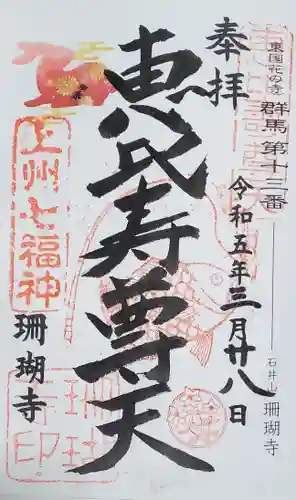 東国花の寺
群馬第十三番
石井山 珊瑚寺
奉拝
令和五年三月廿八日
恵比寿尊天
上州七福神
珊瑚寺